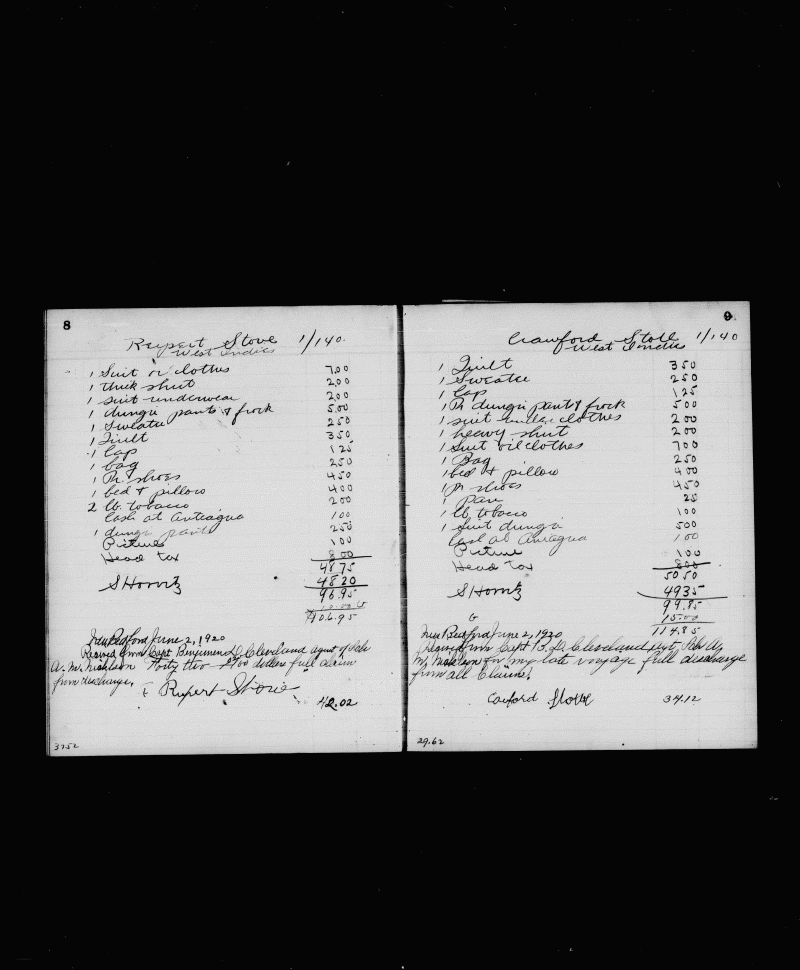 8
Rupert Stove 1/140.
West Indies
1 Suit oil clothes 7.00
1 thick shirt 2.00
1 suit underwear 2.00
1 dungri pants & frock 5.00
1 Sweater 2.50
1 Quilt 3.50
1 Cap 1.25
1 bag 2.50
1 Pr shoes 4.50
1 bed & pillow 4.00
2 lb. tobacco 2.00
Cash at Anticagua 1.00
1 dungri pants 2.50
Pictures 1.00
Head tax 8.00
48.75
S Horvitz 48.20
96.95
10.00
106.95
New Bedford June 2, 1920
Received from Capt Benjamin D. Cleveland agent of Sch
A. M. Nicholson Forty two dollars full claim
from discharge.
Rupert Stovie
42.02
3752
9
Crawford Stoll 1/140
West Indies
1 Quilt 3.50
1 Sweater 2.50
1 Cap 1.25
1 Pr dungri pants & frock 5.00
1 suit under clothes 2.00
1 heavy shirt 2.00
1 Suit oil clothes 7.00
1 Bag 2.50
1 bed & pillow 4.00
1 pr shoes 4.50
1 pan 25
1 lb tobacco 1.00
1 Suit dungri 5.00
Cash at Antiagua 1.00
Picture 1.00
Head tax 8.00
50.50
S Horvitz 49.35
99.85
15.00
114.85
New Bedford June 2, 1920
Received from Capt B. D. Cleveland agt Sch A.
M. Nicholson for my late voyage full discharge
from all Claims.
Caxford Stovel 34.12
29.62